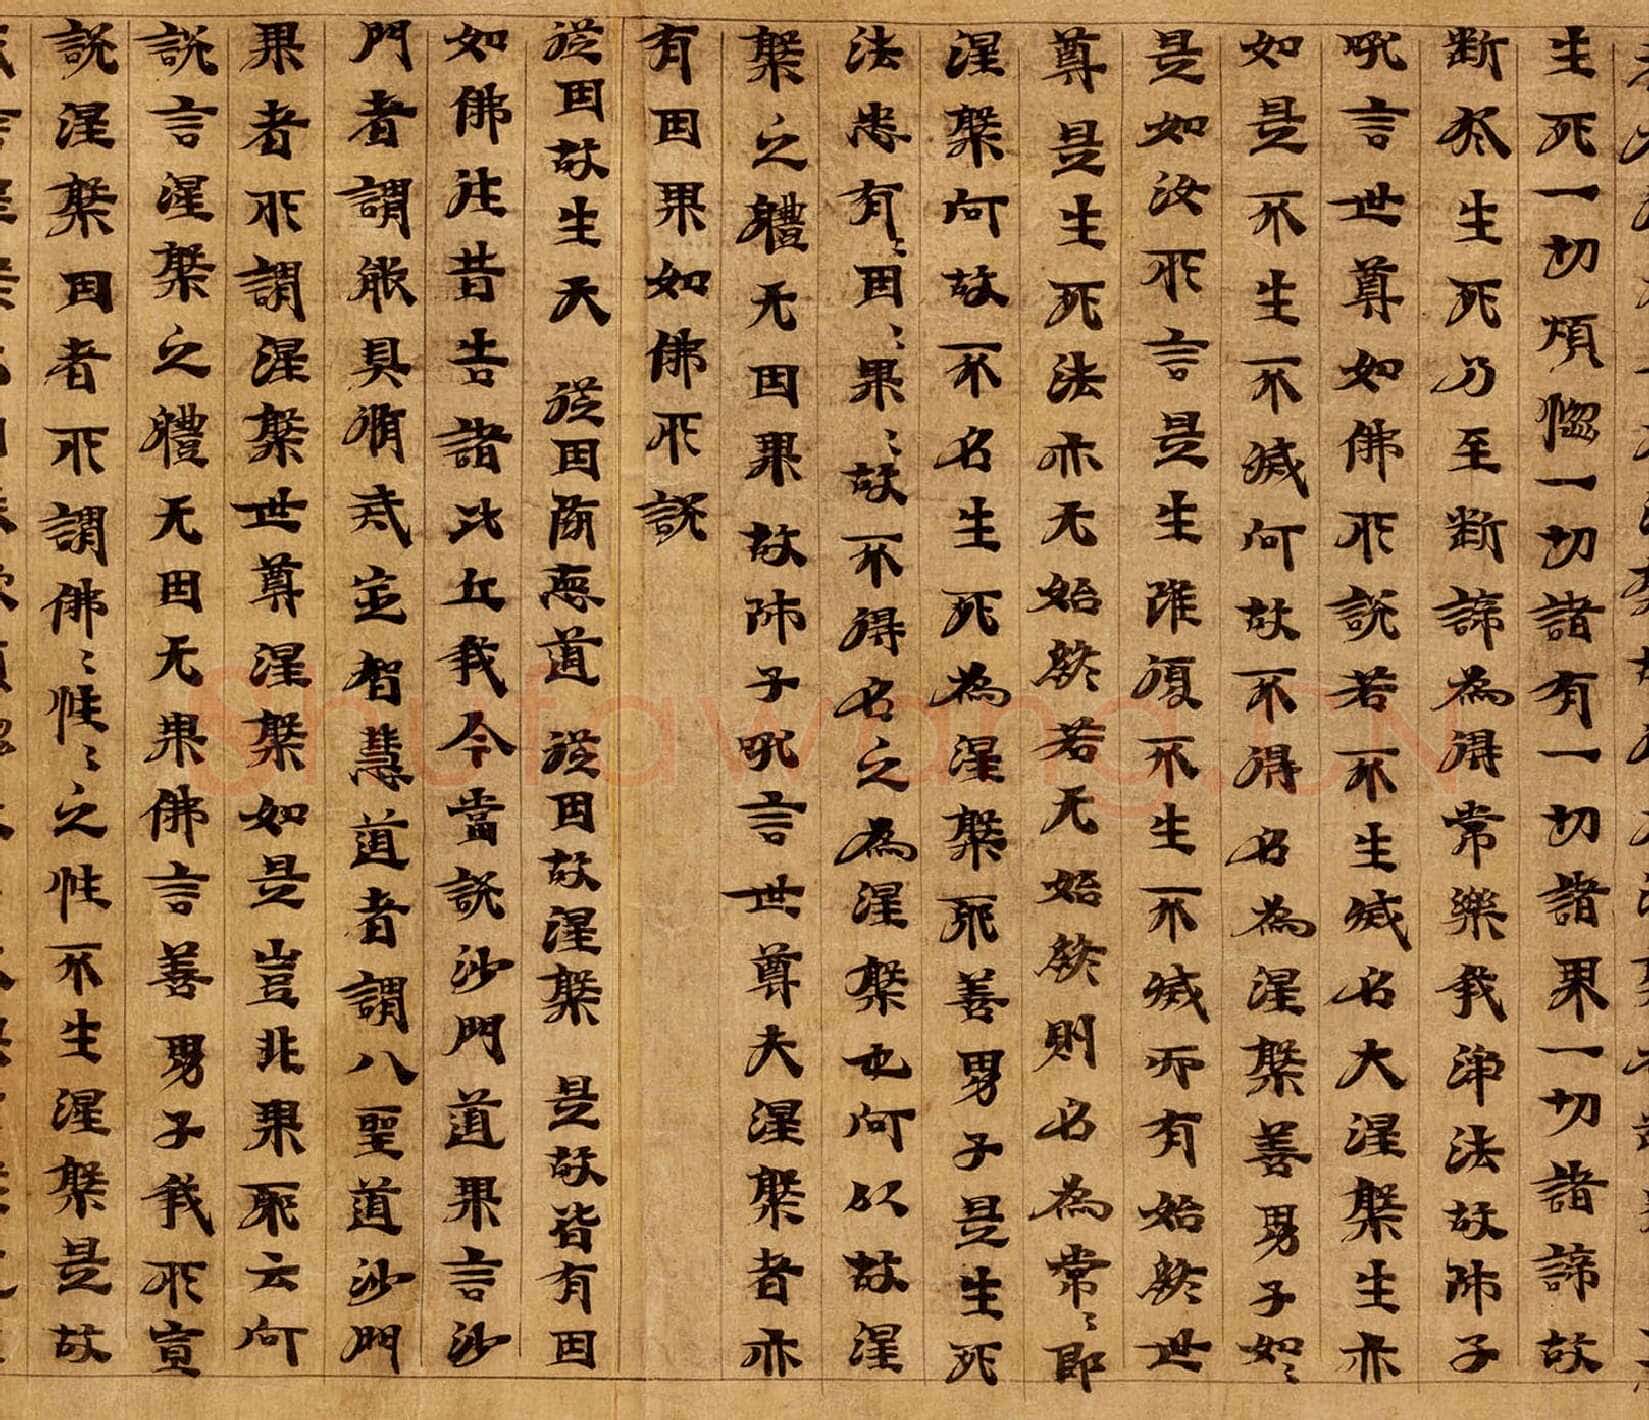 生死一切煩惱一切諸有一切諸果一切諸諦故
斷於生死乃至斷諦為得常樂我淨法故師子
吼言世尊如佛所說若不生滅名大涅槃生亦
如是不生不滅何故不得名為涅槃善男子如〻
是如汝所言是生雖復不生不滅而有始終世
尊是生死法亦无始終若无始終則名為常〻即
涅槃何故不名生死為涅槃耶善男子是生死
法悉有〻因〻果〻故不得名之為涅槃也何以故涅
槃之體无因果故師子吼言世尊夫涅槃者亦
有因果如佛所說
從因故生天 從因墮惡道 從因故涅槃 是故皆有因
如佛往昔告諸比丘我今當說沙門道果言沙
門者謂能具脩戒定智慧道者謂八聖道沙門
果者所謂涅槃世尊涅槃如是豈非果耶云何
說言涅槃之體无因无果佛言善男子我所宣
說涅槃因者所謂佛〻性〻之性不生涅槃是故
Shufawang.CN